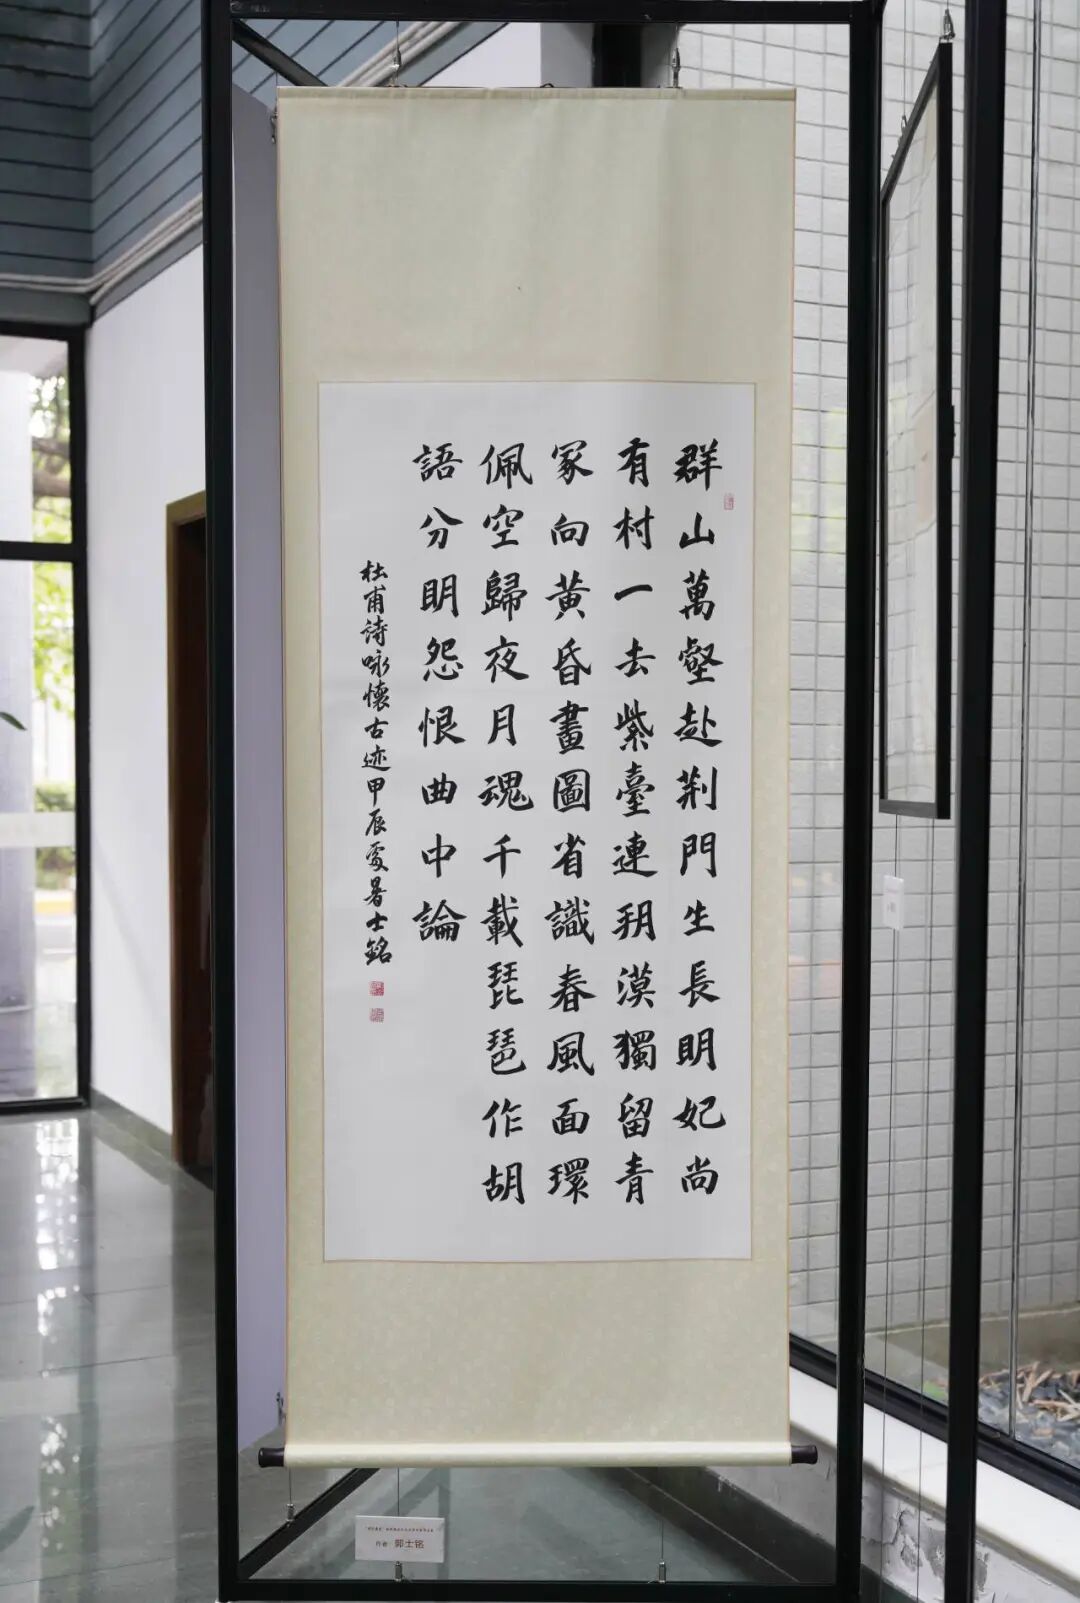 群山萬壑赴荆門生長明妃尚
有村一去紫臺連朔漠獨留青
冢向黄昏畫圖省識春風面環
佩空歸夜月魂千載琵琶作胡
語分明怨恨曲中論
杜甫诗咏懷古迹甲辰處暑士銘
作者 郭士铭